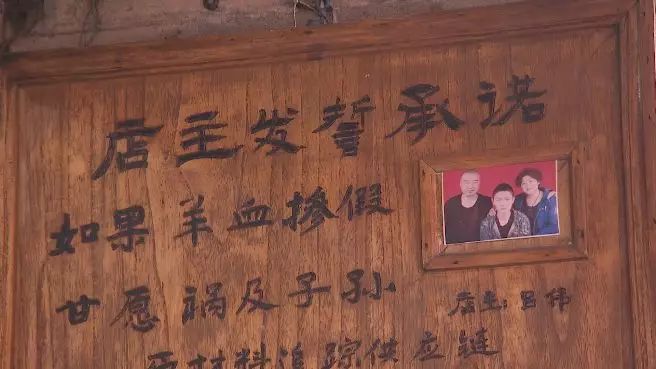 店主发誓承诺
如果羊血掺假
甘愿祸及子孙
店主:吕伟
原材料追踪供应链